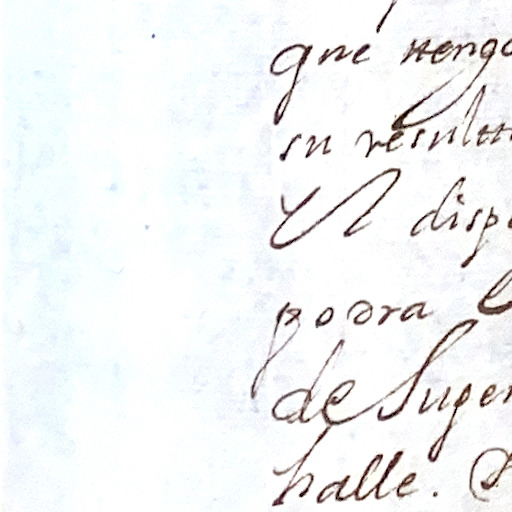 que teng
su result
V dispo
podra
de Suger
halle.